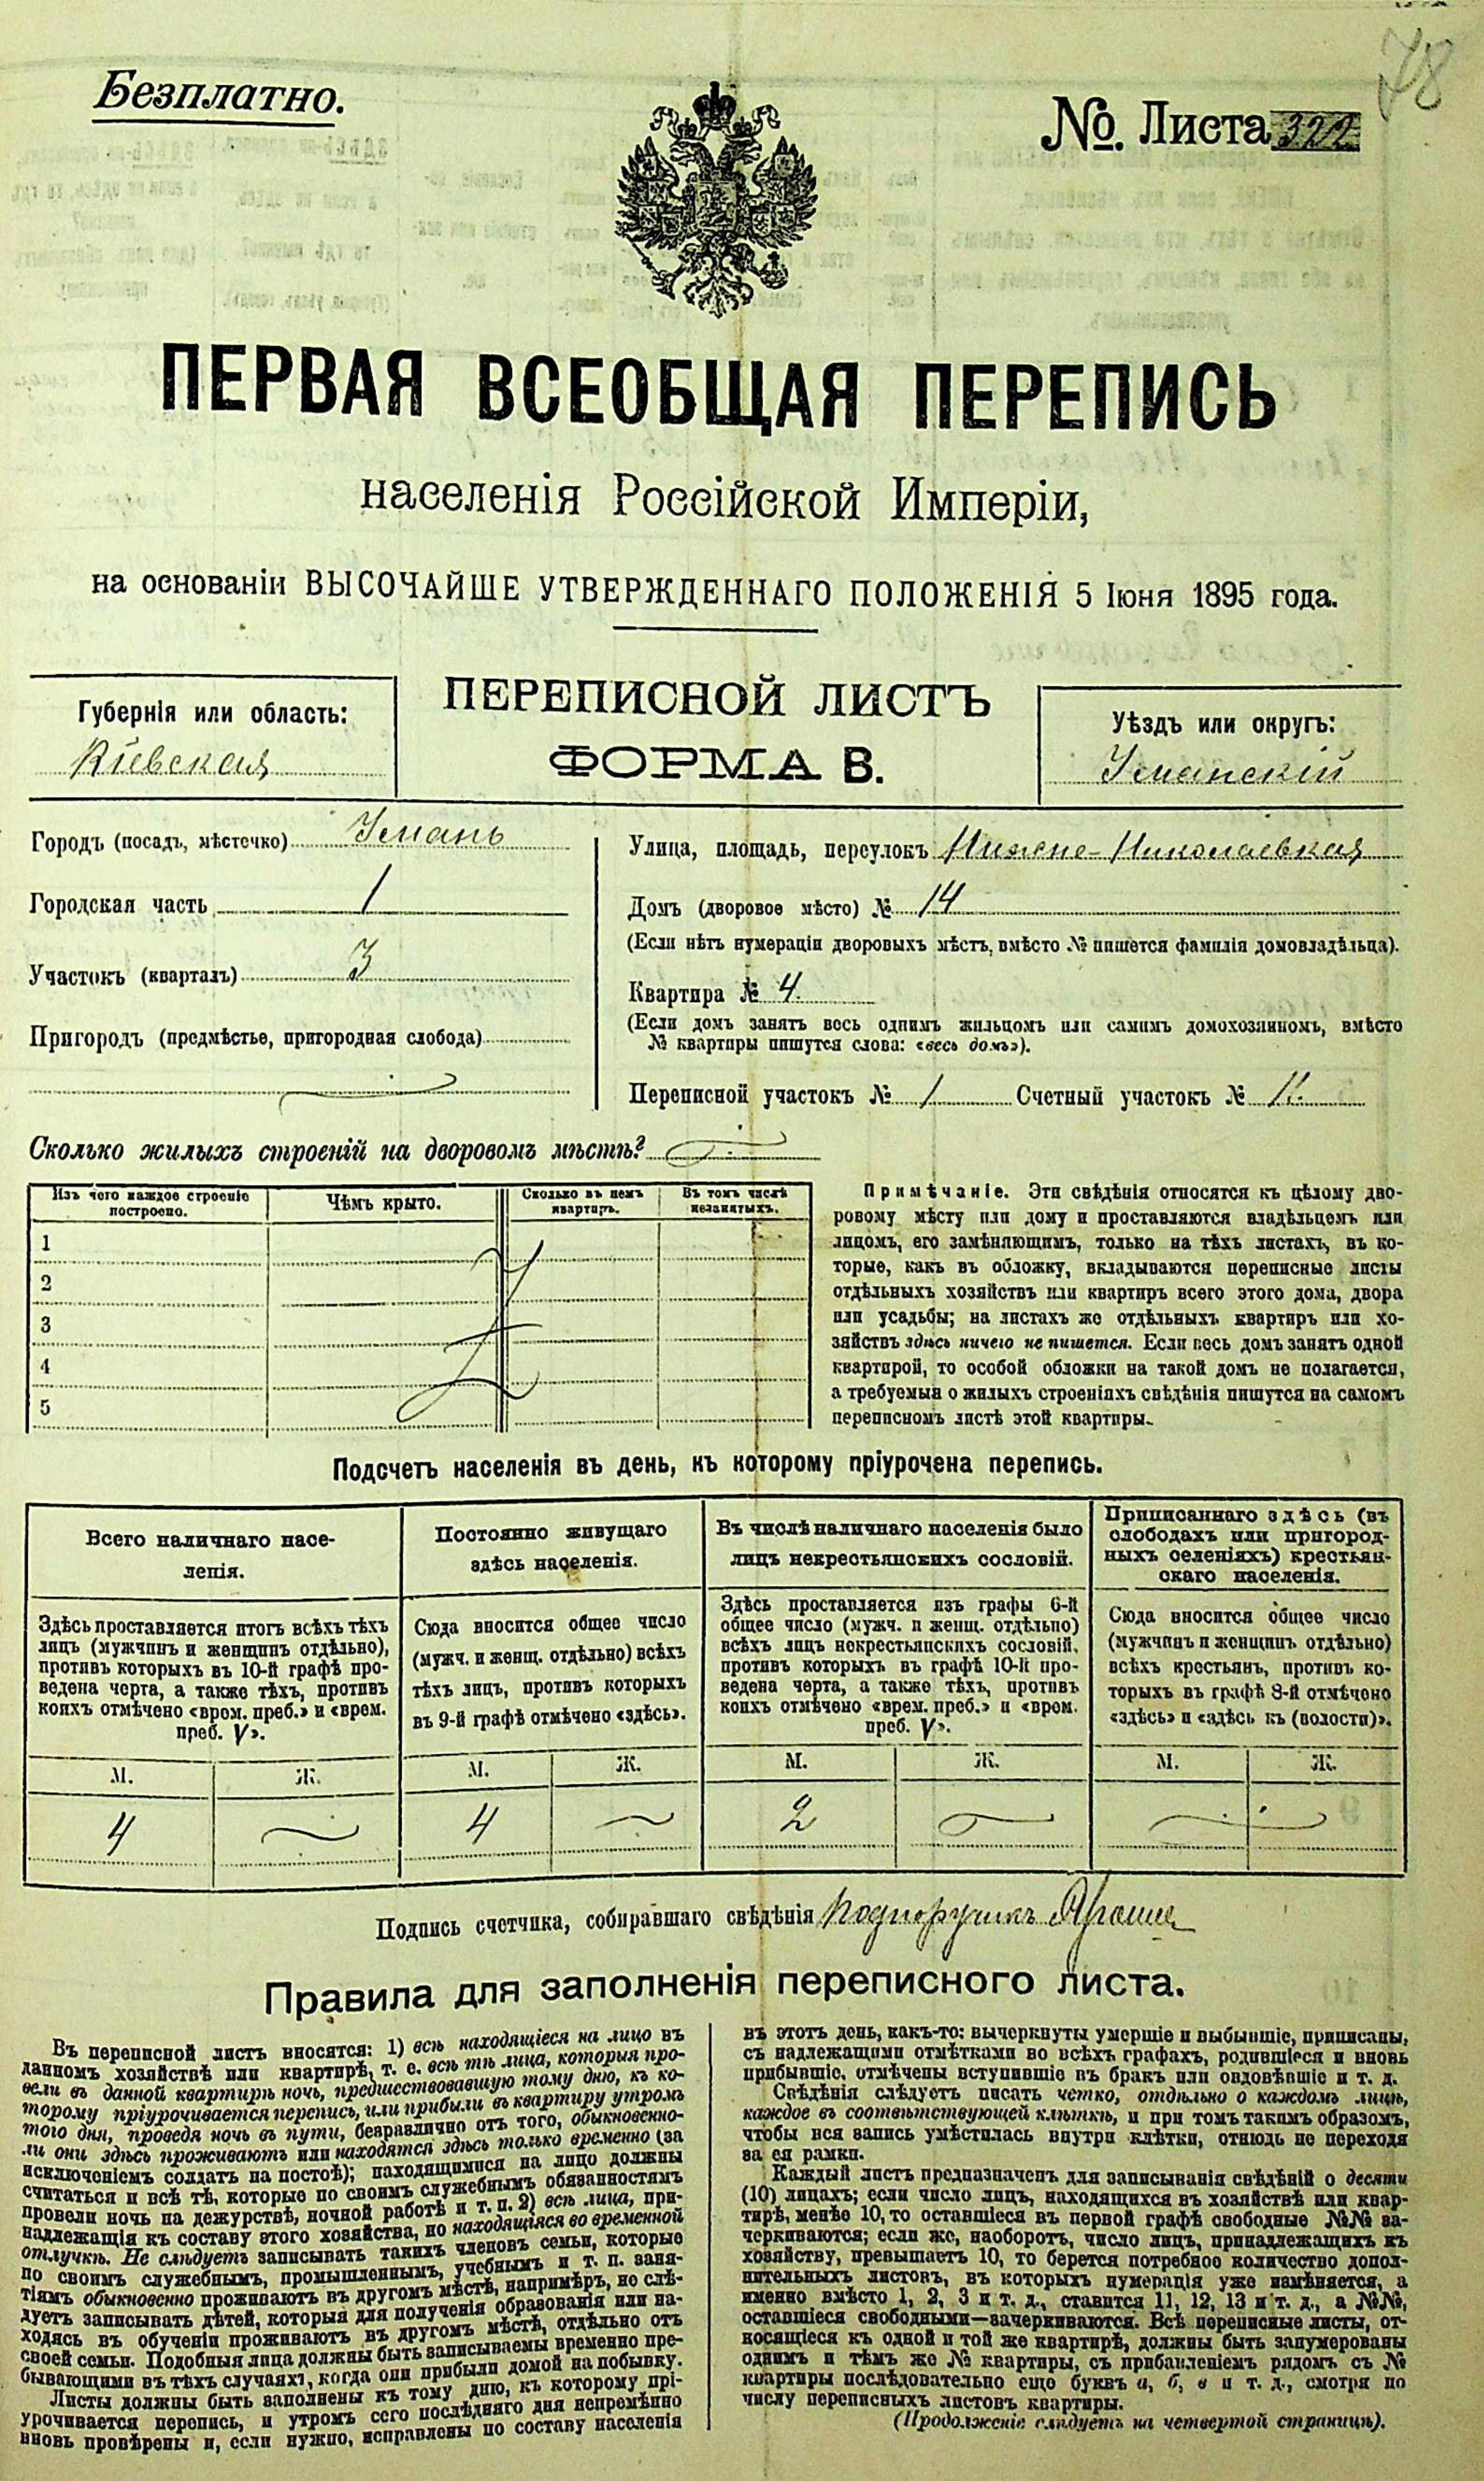 78
Безплатно.
№. Листа 322
ПЕРВАЯ ВСЕОБЩАЯ ПЕРЕПИСЬ
населенія Россійской Имперіи,
на основаніи ВЫСОЧАЙШЕ УТВЕРЖДЕННАГО ПОЛОЖЕНІЯ 5 Іюня 1895 года.
Губернія или область:
Кіевская
ПЕРЕПИСНОЙ ЛИСТЪ
ФОРМА В.
Уѣздъ или округъ:
Уманскій
Городъ (посадъ, мѣстечко) Умань
Городская часть 1
Участокъ (кварталъ) 3
Пригородъ (предмѣстье, пригородная слобода)
Улица, площадь, переулокъ Нижне-Николаевская
Домъ (дворовое мѣсто) № 14
(Если нѣтъ нумераціи дворовыхъ мѣстъ, вмѣсто № пишется фамилія домовладѣльца).
Квартира № 4.
(Если домъ занятъ весь однимъ жильцомъ или самимъ домохозяиномъ, вмѣсто
№ квартиры пишутся слова: «весь домъ»).
Переписной участокъ № 1 Счетный участокъ № 11.
Сколько жилыхъ строеній на дворовомъ мѣстѣ?
Изъ чего каждое строеніе
построено.
Чѣмъ крыто.
Сколько въ немъ
квартиръ.
Въ томъ числѣ
незанятыхъ.
1
2
3
4
5
Примѣчаніе. Эти свѣдѣнія относятся къ цѣлому дво-
ровому мѣсту или дому и проставляются владѣльцемъ или
лицомъ, его замѣняющимъ, только на тѣхъ листахъ, въ ко-
торые, какъ въ обложку, вкладываются переписные листы
отдѣльныхъ хозяйствъ или квартиръ всего этого дома, двора
или усадьбы; на листахъ же отдѣльныхъ квартиръ или хо-
зяйствъ здѣсь ничего не пишется. Если весь домъ занятъ одной
квартирой, то особой обложки на такой домъ не полагается,
а требуемыя о жилыхъ строеніяхъ свѣдѣнія пишутся на самомъ
переписномъ листѣ этой квартиры.
Подсчетъ населенія въ день, къ которому пріурочена перепись.
Всего наличнаго насе-
ленія.
Здѣсь проставляется итогъ всѣхъ тѣхъ
лицъ (мужчинъ и женщинъ отдѣльно),
противъ которыхъ въ 10-й графѣ про-
ведена черта, а также тѣхъ, противъ
коихъ отмѣчено «врем. преб.» и «врем.
преб. V».
Постоянно живущаго
здѣсь населенія.
Сюда вносится общее число
(мужч. и женщ. отдѣльно) всѣхъ
тѣхъ лицъ, противъ которыхъ
въ 9-й графѣ отмѣчено «здѣсь».
Въ числѣ наличнаго населенія было
лицъ некрестьянскихъ сословій.
Здѣсь проставляется изъ графы 6-й
общее число (мужч. и женщ. отдѣльно)
всѣхъ лицъ некрестьянскихъ сословій,
противъ которыхъ въ графѣ 10-й про-
ведена черта, а также тѣхъ, противъ
коихъ отмѣчено «врем. преб.» и «врем.
преб. V».
Приписаннаго здѣсь (въ
слободахъ или пригород-
ныхъ селеніяхъ) крестьян-
скаго населенія.
Сюда вносится общее число
(мужчинъ и женщинъ отдѣльно)
всѣхъ крестьянъ, противъ ко-
торыхъ въ графѣ 8-й отмѣчено
«здѣсь» и «здѣсь къ (волости)».
М. Ж. М. Ж. М. Ж. М. Ж.
4 4 2
Подпись счетчика, собиравшаго свѣдѣнія Подпоручикъ
Правила для заполненія переписного листа.
Въ переписной листъ вносятся: 1) всѣ находящіеся на лицо въ
данномъ хозяйствѣ или квартирѣ, т. е. всѣ тѣ лица, которыя про-
вели въ данной квартирѣ ночь, предшествовавшую тому дню, къ ко-
торому пріурочивается перепись, или прибыли въ квартиру утромъ
того дня, проведя ночь въ пути, безразлично отъ того, обыкновенно-
ли они здѣсь проживаютъ или находятся здѣсь только временно (за
исключеніемъ солдатъ на постоѣ); находящимися на лицо должны
считаться и всѣ тѣ, которые по своимъ служебнымъ обязанностямъ
провели ночь на дежурствѣ, ночной работѣ и т. п. 2) всѣ лица, при-
надлежащія къ составу этого хозяйства, но находящіяся во временной
отлучкѣ. Не слѣдуетъ записывать такихъ членовъ семьи, которые
по своимъ служебнымъ, промышленнымъ, учебнымъ и т. п. заня-
тіямъ обыкновенно проживаютъ въ другомъ мѣстѣ, напримѣръ, не слѣ-
дуетъ записывать дѣтей, которыя для полученія образованія или на-
ходясь въ обученіи проживаютъ въ другомъ мѣстѣ, отдѣльно отъ
своей семьи. Подобныя лица должны быть записываемы временно пре-
бывающими въ тѣхъ случаяхъ, когда они прибыли домой на побывку.
Листы должны быть заполнены къ тому дню, къ которому прі-
урочивается перепись, и утромъ сего послѣдняго дня непремѣнно
вновь провѣрены и, если нужно, исправлены по составу населенія
въ этотъ день, какъ-то: вычеркнуты умершіе и выбывшіе, приписаны,
съ надлежащими отмѣтками во всѣхъ графахъ, родившіеся и вновь
прибывшіе, отмѣчены вступившіе въ бракъ или овдовѣвшіе и т. д.
Свѣдѣнія слѣдуетъ писать четко, отдѣльно о каждомъ лицѣ,
каждое въ соотвѣтствующей клѣткѣ, и при томъ такимъ образомъ,
чтобы вся запись умѣстилась внутри клѣтки, отнюдь не переходя
за ея рамки.
Каждый листъ предназначенъ для записыванія свѣдѣній о десяти
(10) лицахъ; если число лицъ, находящихся въ хозяйствѣ или квар-
тирѣ, менѣе 10, то оставшіеся въ первой графѣ свободные №№ за-
черкиваются; если же, наоборотъ, число лицъ, принадлежащихъ къ
хозяйству, превышаетъ 10, то берется потребное количество допол-
нительныхъ листовъ, въ которыхъ нумерація уже измѣняется, а
именно вмѣсто 1, 2, 3 и т. д., ставится 11, 12, 13 и т. д., а №№,
оставшіеся свободными—зачеркиваются. Всѣ переписные листы, от-
носящіеся къ одной и той же квартирѣ, должны быть занумерованы
однимъ и тѣмъ же № квартиры, съ прибавленіемъ рядомъ съ №
квартиры послѣдовательно еще буквъ а, б, в и т. д., смотря по
числу переписныхъ листовъ квартиры.
(Продолженіе слѣдуетъ на четвертой страницѣ).